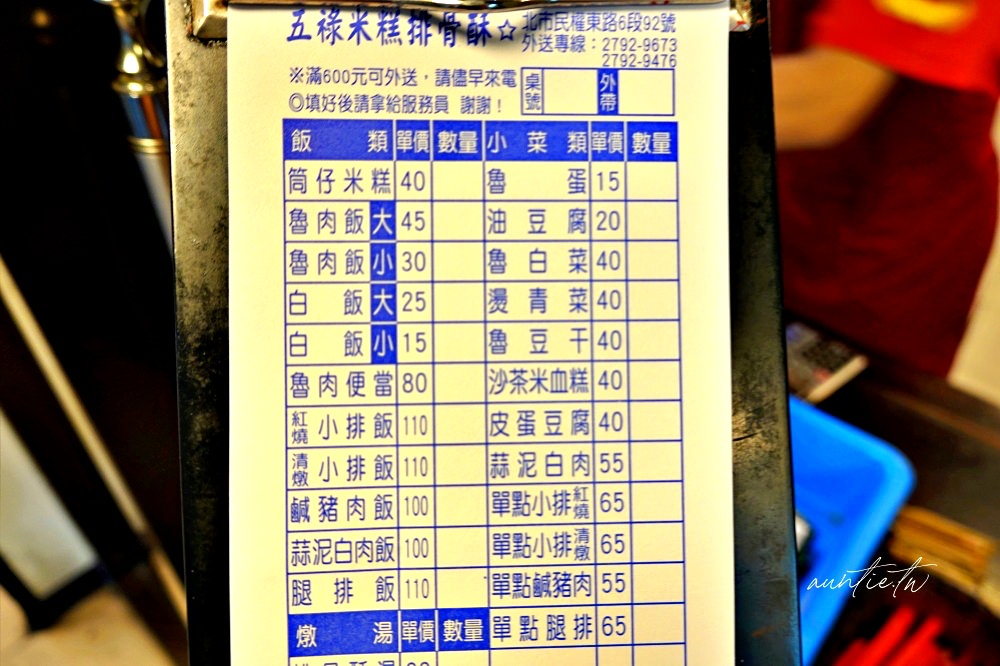 五祿米糕排骨酥☆
北市民權東路6段92號
外送專線：2792-9673
2792-9476
※滿600元可外送，請儘早來電
◎填好後請拿給服務員 謝謝！
桌號 外帶
飯類 單價 數量 小菜類 單價 數量
筒仔米糕 40 魯蛋 15
魯肉飯大 45 油豆腐 20
魯肉飯小 30 魯白菜 40
白飯大 25 燙青菜 40
白飯小 15 魯豆干 40
魯肉便當 80 沙茶米血糕 40
紅燒小排飯 110 皮蛋豆腐 40
清燉小排飯 110 蒜泥白肉 55
鹹豬肉飯 100 單點小排紅燒 65
蒜泥白肉飯 100 單點小排清燉 65
腿排飯 110 單點鹹豬肉 55
燉湯 單價 數量 單點腿排 65
auntie.tw